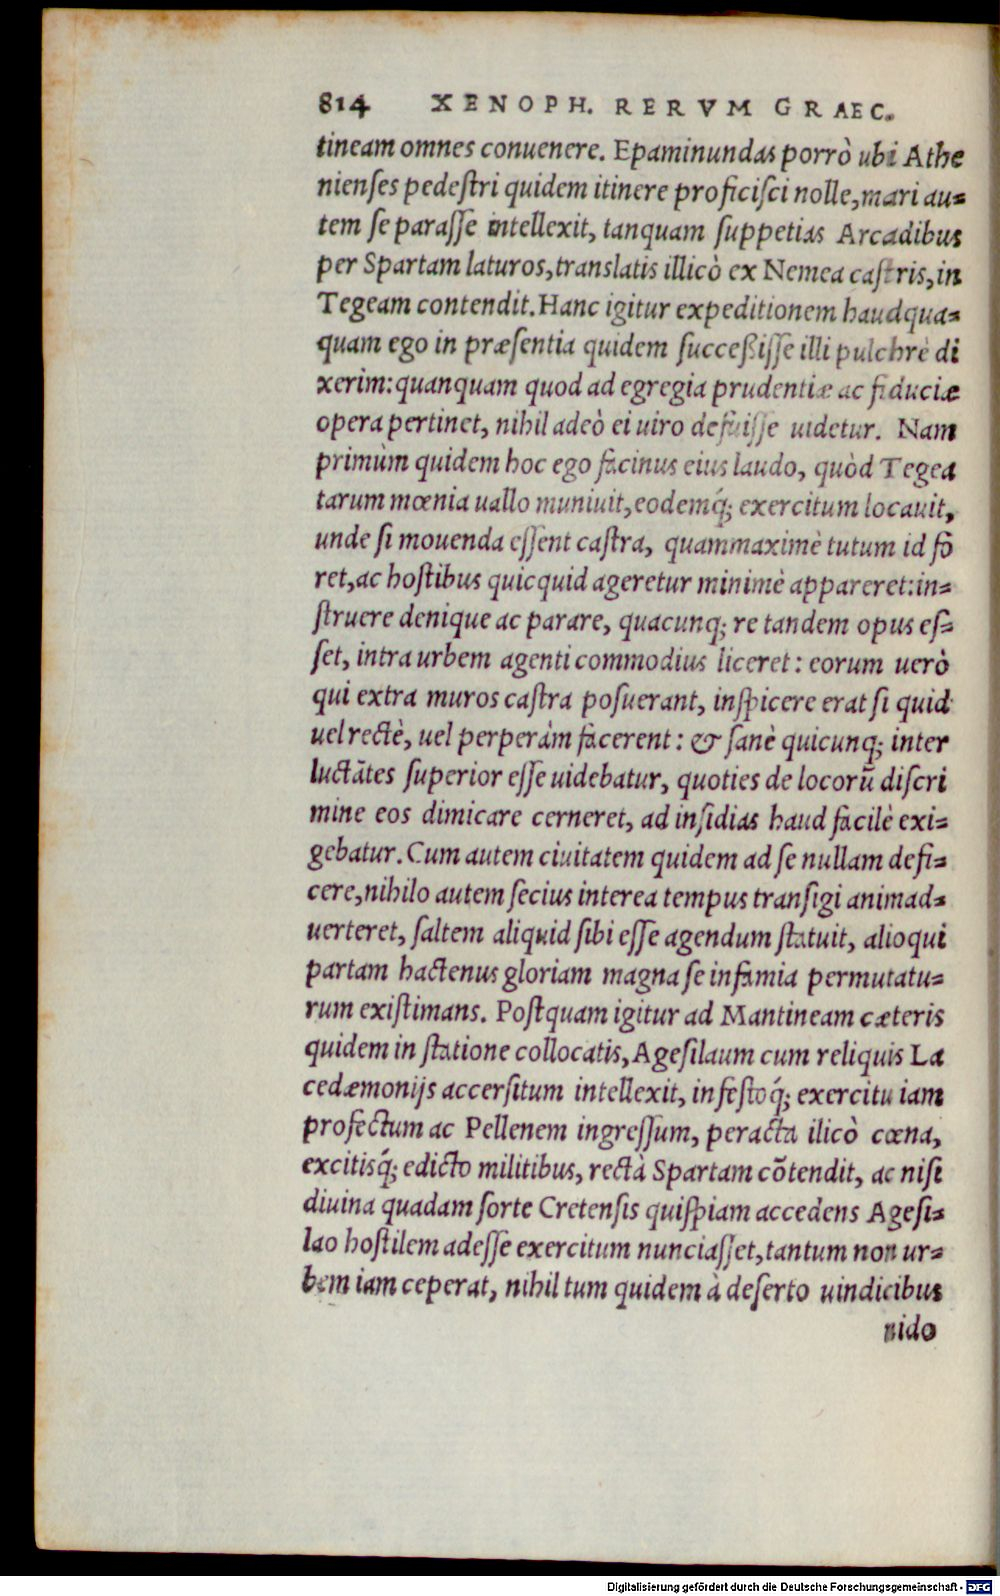 814 XENOPH. RERVM GRAEC.
tineam omnes conuenere. Epaminundas porrò ubi Athe
nienses pedestri quidem itinere proficisci nolle, mari au=
tem se parasse intellexit, tanquam suppetias Arcadibus
per Spartam laturos, translatis illicò ex Nemea castris, in
Tegeam contendit. Hanc igitur expeditionem haudqua=
quam ego in præsentia quidem succeßisse illi pulchrè di
xerim: quanquam quod ad egregia prudentiæ ac fiduciæ
opera pertinet, nihil adeò ei uiro defuisse uidetur. Nam
primùm quidem hoc ego facinus eius laudo, quòd Tegea
tarum mœnia uallo muniuit, eodemq́; exercitum locauit,
unde si mouenda essent castra, quammaximè tutum id fo
ret, ac hostibus quicquid ageretur minimè appareret: in=
struere denique ac parare, quacunq; re tandem opus es=
set, intra urbem agenti commodius liceret: eorum uerò
qui extra muros castra posuerant, inspicere erat si quid
uel rectè, uel perperàm facerent: & sanè quicunq; inter
luctātes superior esse uidebatur, quoties de locorū discri
mine eos dimicare cerneret, ad insidias haud facilè exi=
gebatur. Cum autem ciuitatem quidem ad se nullam defi=
cere, nihilo autem secius interea tempus transigi animad=
uerteret, saltem aliquid sibi esse agendum statuit, alioqui
partam hactenus gloriam magna se infamia permutatu=
rum existimans. Postquam igitur ad Mantineam cæteris
quidem in statione collocatis, Agesilaum cum reliquis La
cedæmonijs accersitum intellexit, infestoq́; exercitu iam
profectum ac Pellenem ingressum, peracta ilicò cœna,
excitisq́; edicto militibus, rectà Spartam cōtendit, ac nisi
diuina quadam sorte Cretensis quispiam accedens Agesi=
lao hostilem adesse exercitum nunciasset, tantum non ur=
bem iam ceperat, nihil tum quidem à deserto uindicibus
nido
Digitalisierung gefördert durch die Deutsche Forschungsgemeinschaft - DFG